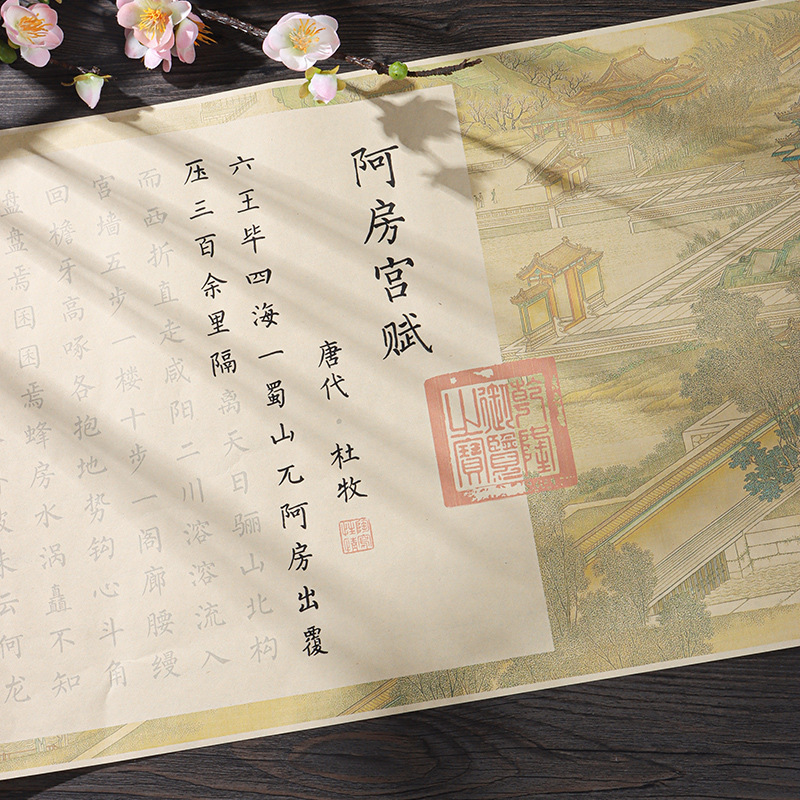 阿房宫赋
唐代·杜牧
六王毕四海一蜀山兀阿房出覆
压三百余里隔离天日骊山北构
而西折直走咸阳二川溶溶流入
宫墙五步一楼十步一阁廊腰缦
回檐牙高啄各抱地势钩心斗角
盘盘焉囷囷焉蜂房水涡矗不知
波未云何龙
乾隆
御覽
之寶